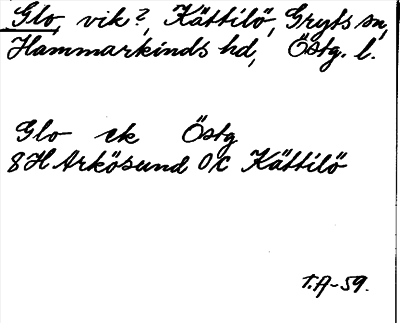 Glo, vik?, Kättilö, Gryts sn,
Hammarkinds hd, Östg. l.
Glo ek Östg
8H Arkösund 0c Kättilö
T.A-59.